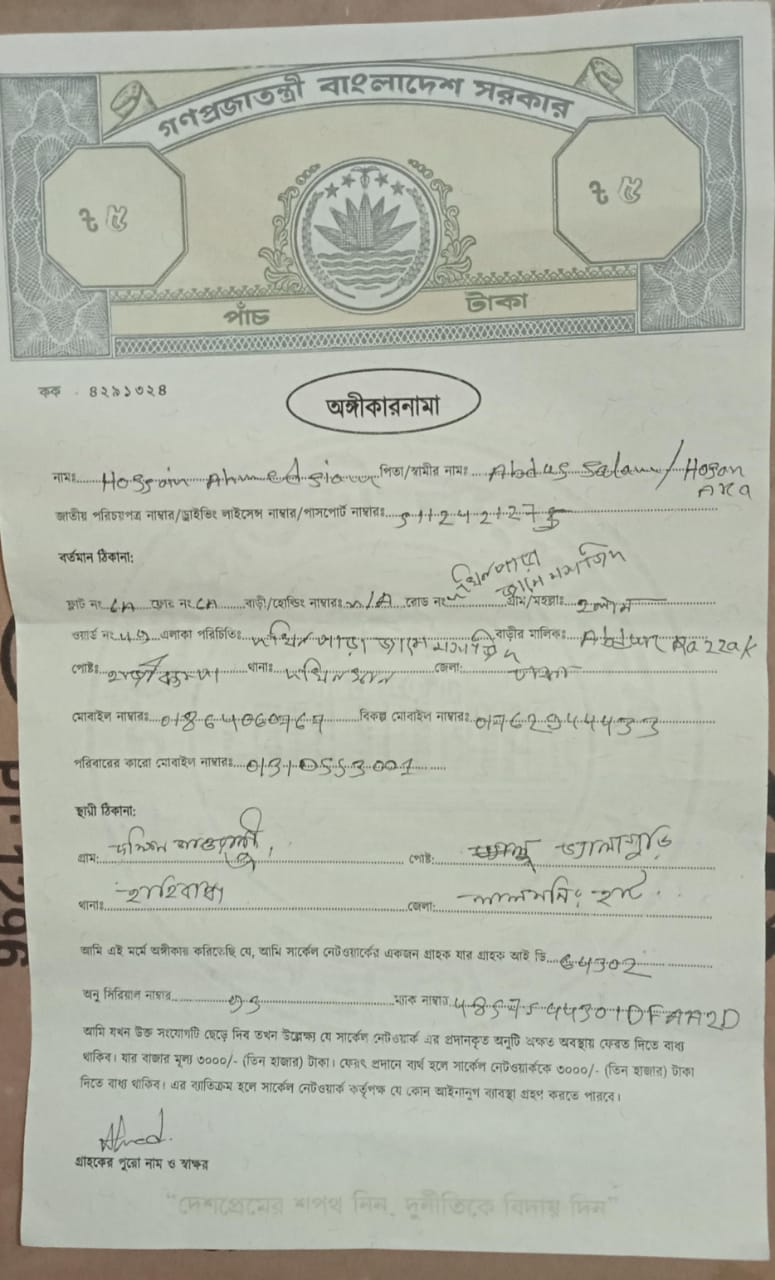 গণপ্রজাতন্ত্রী বাংলাদেশ সরকার
৳ ৫ ৳ ৫
পাঁচ টাকা
কক - ৪২৯১৩২৪
অঙ্গীকারনামা
নামঃ Hossain Ahmed পিতা/স্বামীর নামঃ Abdus Salam/Hosan Ara
জাতীয় পরিচয়পত্র নাম্বার/ড্রাইভিং লাইসেন্স নাম্বার/পাসপোর্ট নাম্বারঃ
বর্তমান ঠিকানা:
দক্ষিনপাড়া জামে মসজিদ
ফ্লাট নং ফ্লোর নং বাড়ী/হোল্ডিং নাম্বারঃ N/A রোড নং গ্রাম/মহল্লাঃ
ওয়ার্ড নং এলাকা পরিচিতিঃ দক্ষিন পাড়া জামে মসজিদ বাড়ীর মালিকঃ Abdur Razzak
পোষ্টঃ থানাঃ দক্ষিনখান জেলা: ঢাকা
মোবাইল নাম্বারঃ বিকল্প মোবাইল নাম্বারঃ
পরিবারের কারো মোবাইল নাম্বারঃ
স্থায়ী ঠিকানা:
গ্রাম: দক্ষিন পোষ্ট: ভেলাগুড়ি
থানাঃ হাতিবান্ধা জেলা: লালমনিরহাট
আমি এই মর্মে অঙ্গীকার করিতেছি যে, আমি সার্কেল নেটওয়ার্কের একজন গ্রাহক যার গ্রাহক আই ডি 64302
অনু সিরিয়াল নাম্বার ৩৩ ম্যাক নাম্বার
আমি যখন উক্ত সংযোগটি ছেড়ে দিব তখন উল্লেক্ষ্য যে সার্কেল নেটওয়ার্ক এর প্রদানকৃত অনুটি অক্ষত অবস্থায় ফেরত দিতে বাধ্য
থাকিব। যার বাজার মূল্য ৩০০০/- (তিন হাজার) টাকা। ফেরৎ প্রদানে ব্যর্থ হলে সার্কেল নেটওয়ার্ককে ৩০০০/- (তিন হাজার) টাকা
দিতে বাধ্য থাকিব। এর ব্যতিক্রম হলে সার্কেল নেটওয়ার্ক কর্তৃপক্ষ যে কোন আইনানুগ ব্যবস্থা গ্রহণ করতে পারবে।
Ahmed
গ্রাহকের পুরো নাম ও স্বাক্ষর
“দেশপ্রেমের শপথ নিন, দুর্নীতিকে বিদায় দিন”